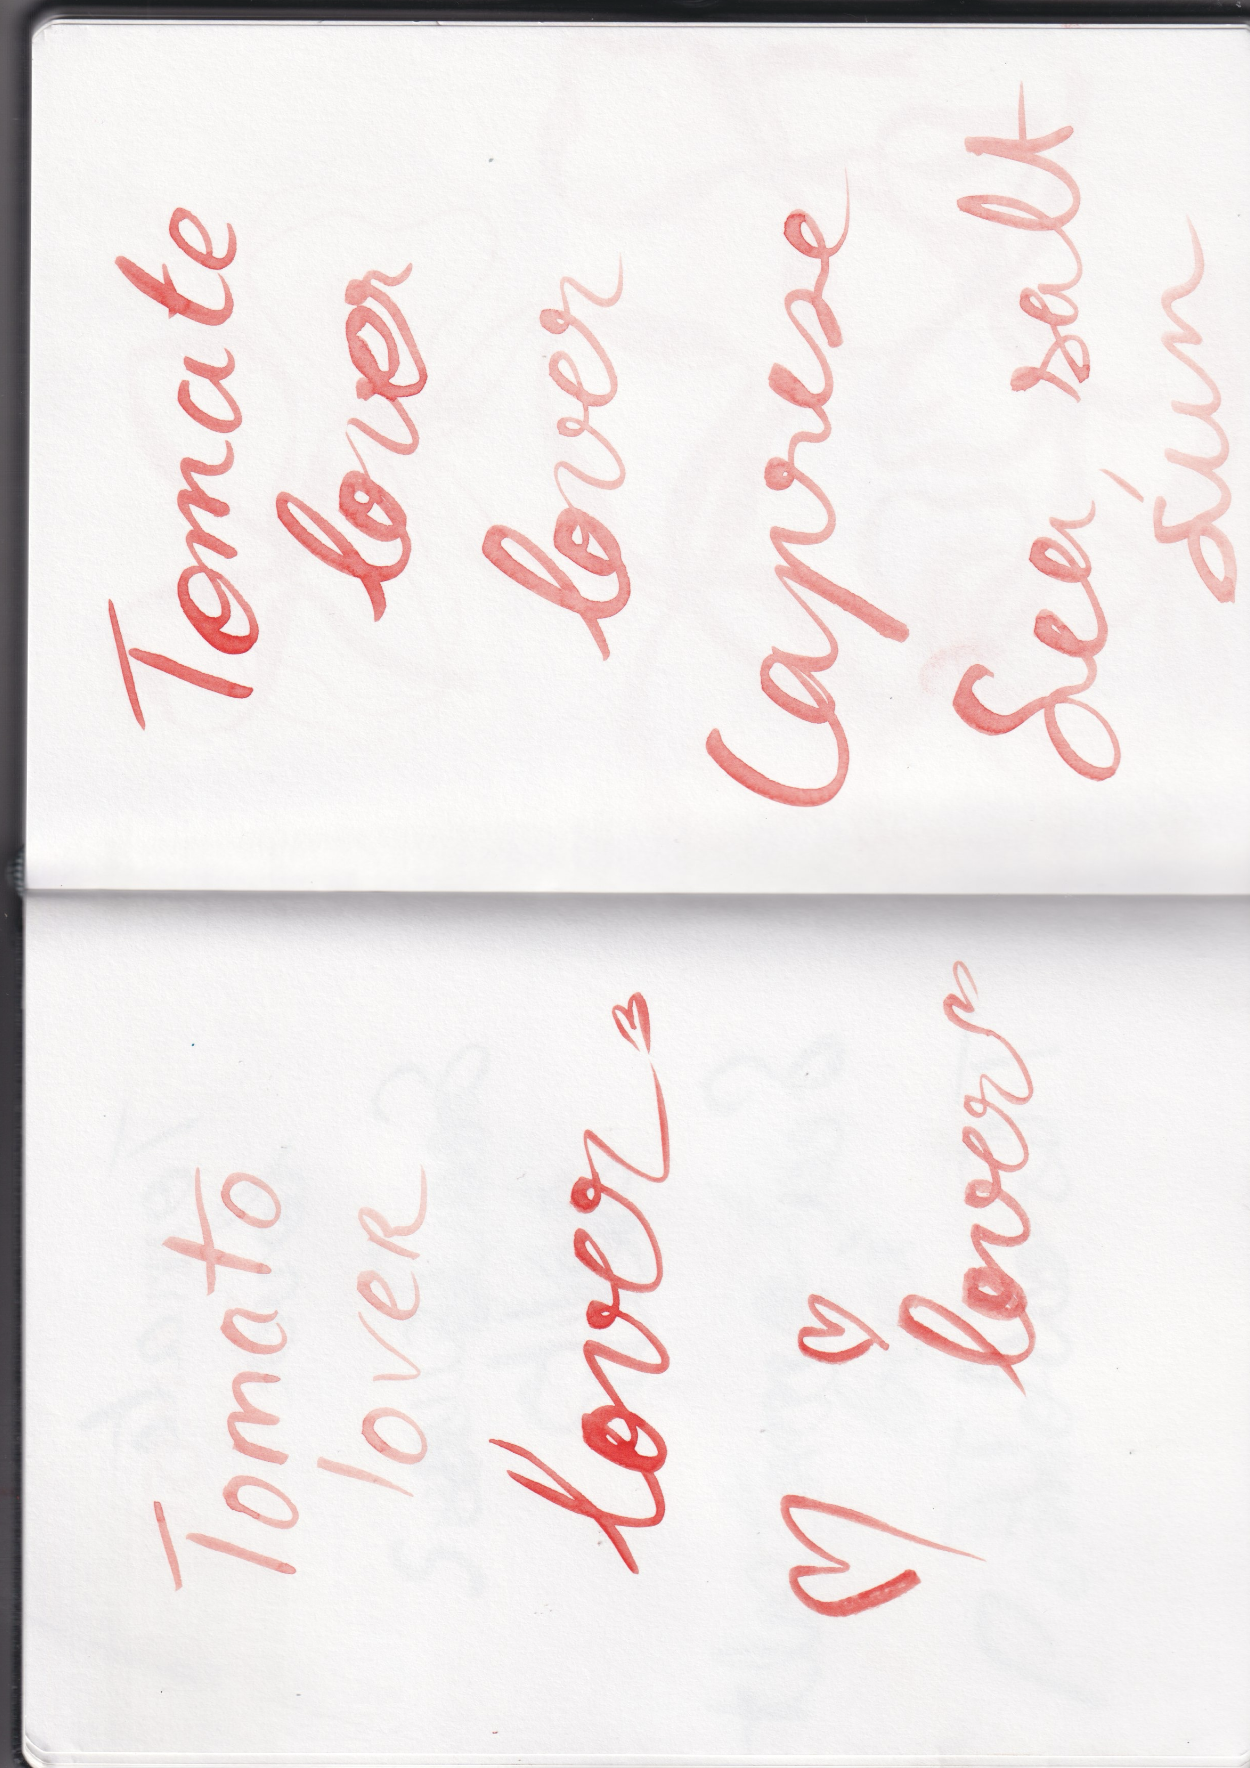 Tomato
lover
lover
lover
Tomate
lover
lover
Caprese
Sea salt
Sun